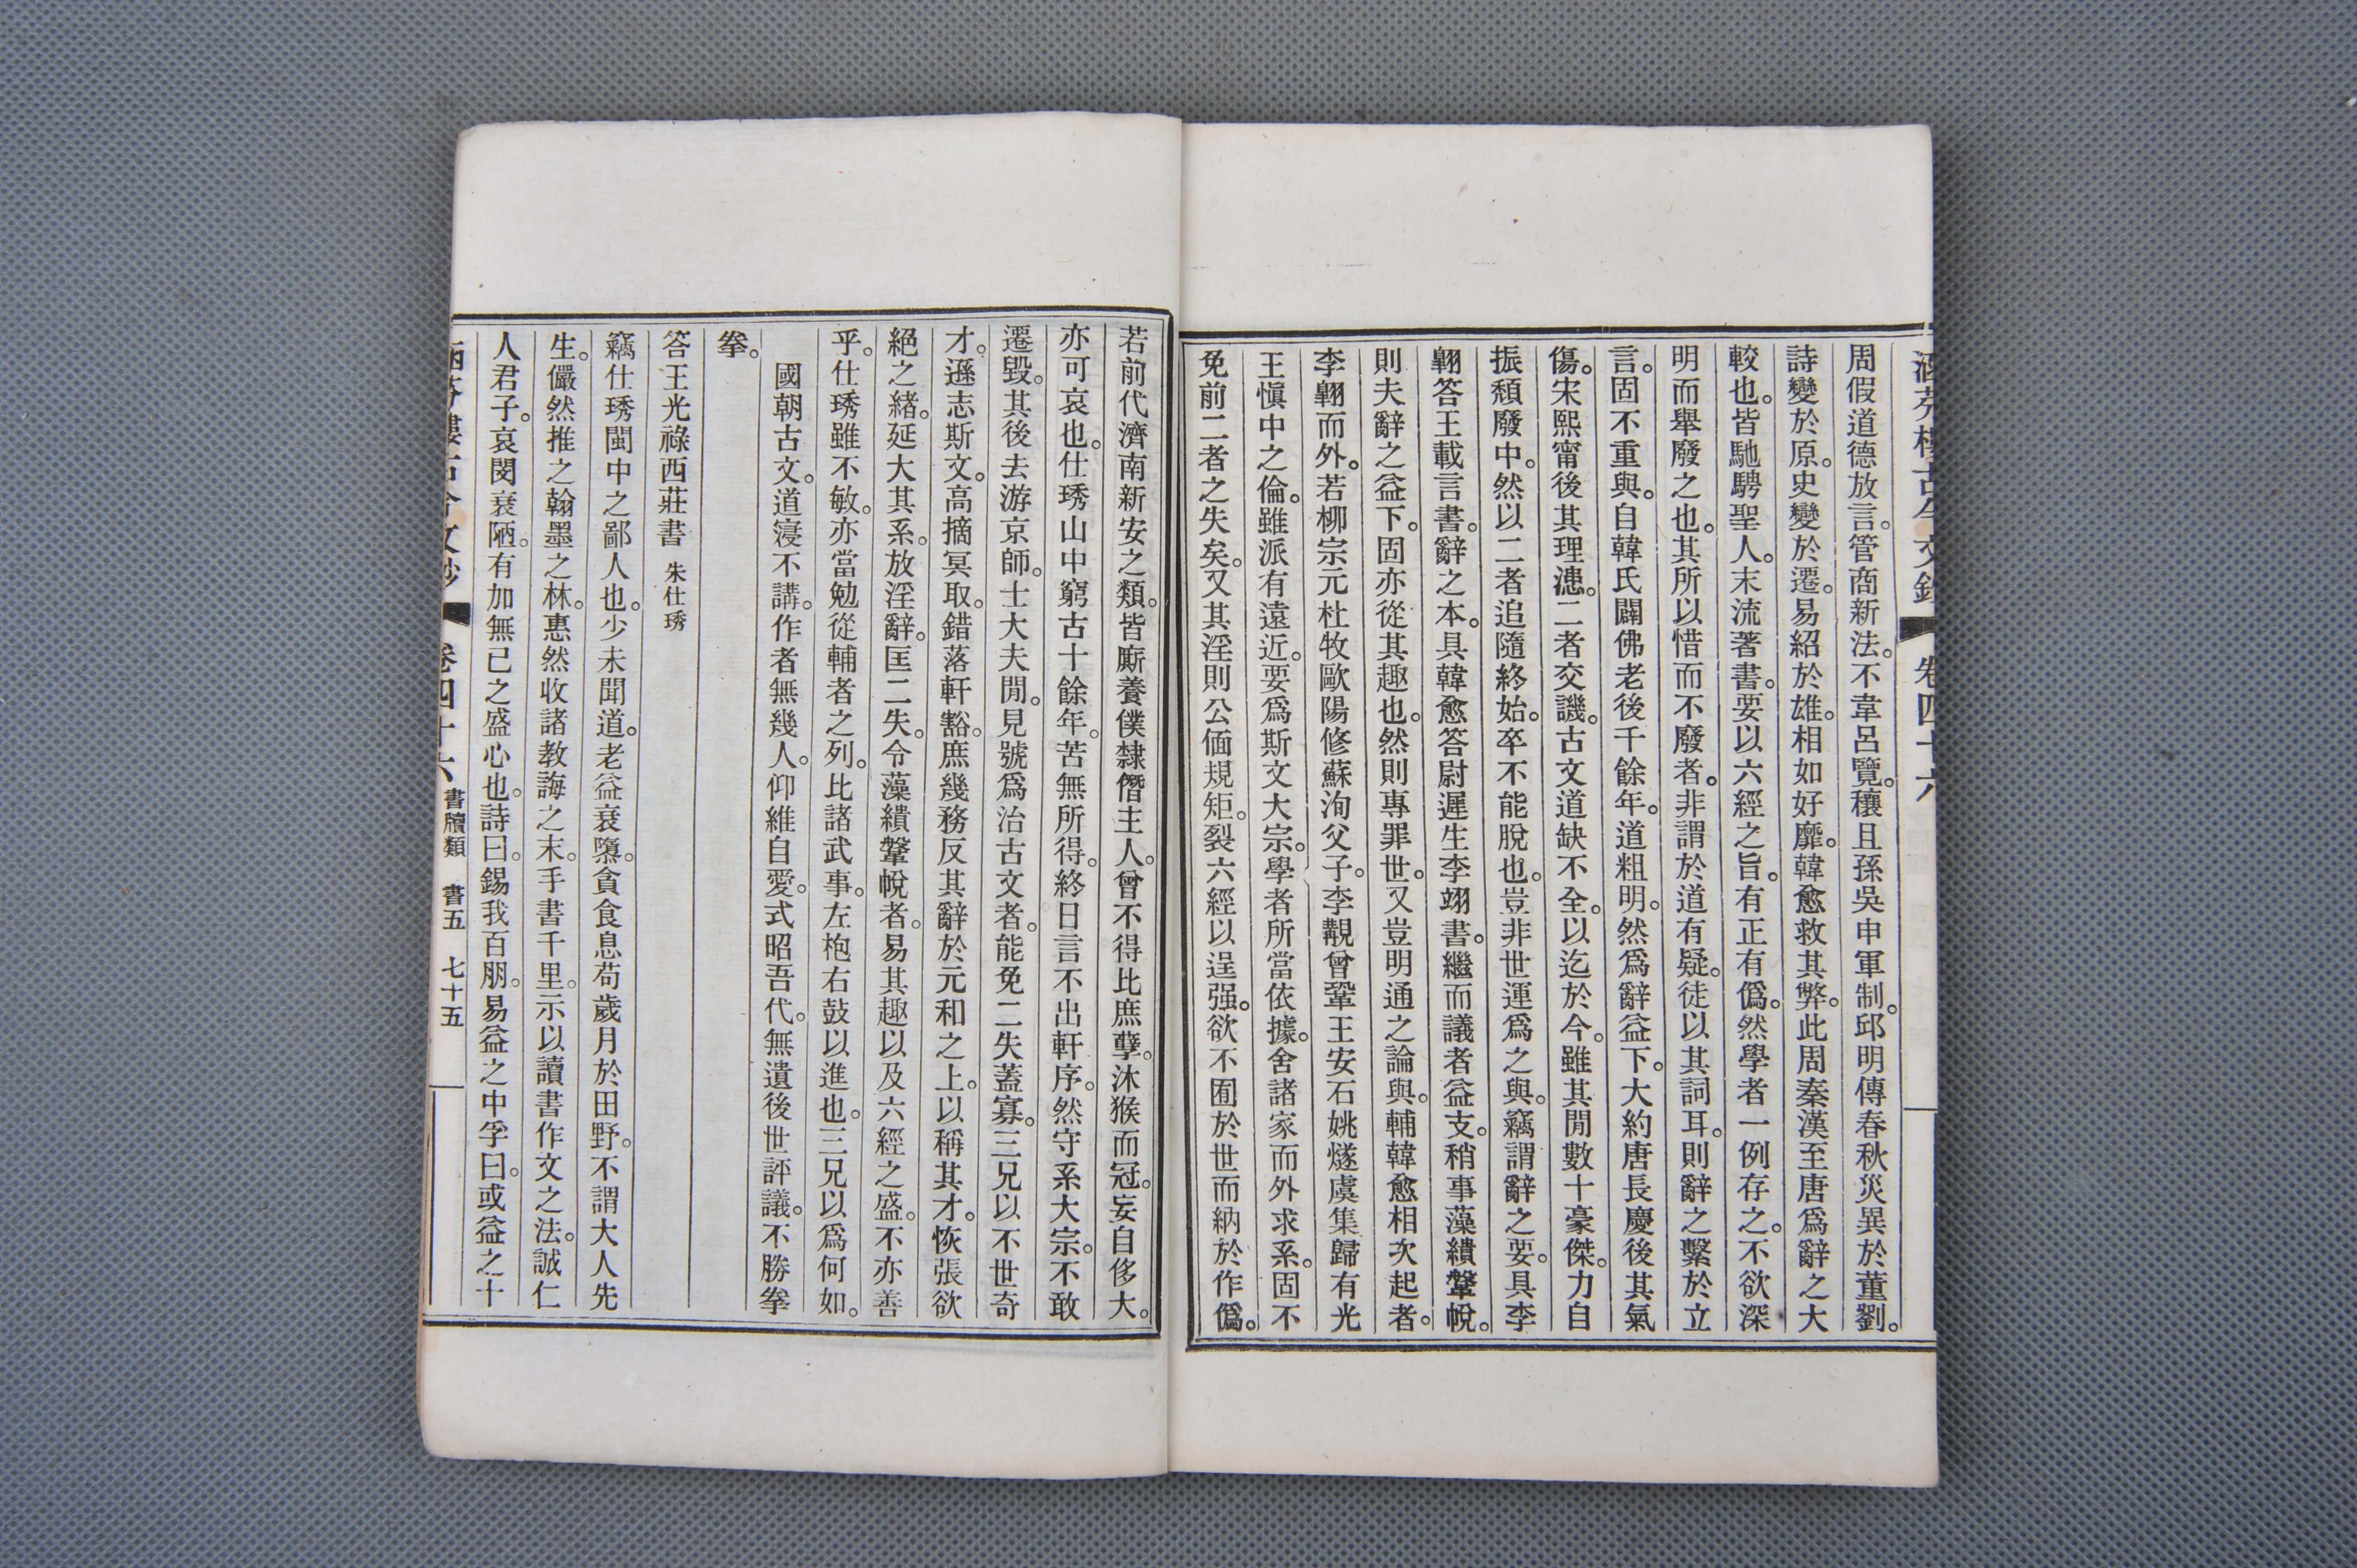 涵芬樓古今文鈔 卷四十六
周假道德放言。管商新法。不韋呂覽。穰且孫吳申軍制。邱明傳春秋災異於董劉。
詩變於原。史變於遷。易紹於雄。相如好靡。韓愈救其弊。此周秦漢至唐爲辭之大
較也。皆馳騁聖人。末流著書。要以六經之旨。有正有僞。然學者一例存之。不欲深
明而舉廢之也。其所以惜而不廢者。非謂於道有疑。徒以其詞耳。則辭之繫於立
言。固不重與。自韓氏闢佛老後千餘年。道粗明。然爲辭益下。大約唐長慶後其氣
傷。宋熙甯後其理漶。二者交譏。古文道缺不全。以迄於今。雖其閒數十豪傑。力自
振頹廢中。然以二者追隨終始。卒不能脫也。豈非世運爲之與。竊謂辭之要。具李
翺答王載言書。辭之本。具韓愈答尉遲生李翊書。繼而議者益支。稍事藻繢鞶帨。
則夫辭之益下。固亦從其趣也。然則專罪世。又豈明通之論與。輔韓愈相次起者。
李翺而外。若柳宗元杜牧歐陽修蘇洵父子。李覯曾鞏王安石姚燧虞集歸有光
王愼中之倫。雖派有遠近。要爲斯文大宗。學者所當依據。舍諸家而外求系。固不
免前二者之失矣。又其淫則公偭規矩。裂六經以逞强。欲不囿於世而納於作僞。
若前代濟南新安之類。皆廝養僕隸僭主人。曾不得比庶孽。沐猴而冠。妄自侈大。
亦可哀也。仕琇山中窮古十餘年。苦無所得。終日言不出軒序。然守系大宗。不敢
遷毀。其後去游京師。士大夫閒。見號爲治古文者。能免二失蓋寡。三兄以不世奇
才。遜志斯文。高摘冥取。錯落軒豁。庶幾務反其辭於元和之上。以稱其才。恢張欲
絕之緒。延大其系。放淫辭。匡二失。令藻繢鞶帨者。易其趣以及六經之盛。不亦善
乎。仕琇雖不敏。亦當勉從輔者之列。比諸武事。左枹右鼓以進也。三兄以爲何如。
國朝古文。道寖不講。作者無幾人。仰維自愛。式昭吾代。無遺後世評議。不勝拳
拳。
答王光祿西莊書 朱仕琇
竊仕琇閩中之鄙人也。少未聞道。老益衰隳。貪食息苟歲月於田野。不謂大人先
生。儼然推之翰墨之林。惠然收諸教誨之末。手書千里。示以讀書作文之法。誠仁
人君子。哀閔衰陋。有加無已之盛心也。詩曰。錫我百朋。易益之中孚曰。或益之十
涵芬樓古今文鈔 卷四十六 書牘類 書五 七十五